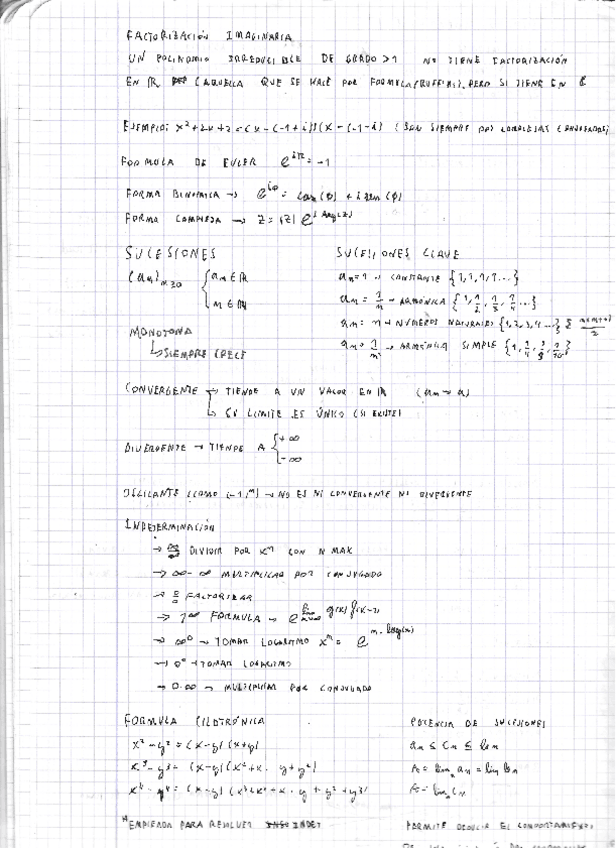 FACTORIZACIÓN IMAGINARIA
UN POLINOMIO IRREDUCIBLE DE GRADO >1 NO TIENE FACTORIZACIÓN
EN ℝ (AQUELLA QUE SE HACE POR FORMULA/RUFFINI), PERO SI TIENE EN ℂ
EJEMPLO: x²+2x+2=(x-(-1+i))(x-(-1-i) (SON SIEMPRE DOS COMPLEJAS CONJUGADAS)
FORMULA DE EULER e^iπ = -1
FORMA BINOMICA → e^iφ = cos(φ) + i sen(φ)
FORMA COMPLEJA → z = |z| e^i Arg(z)
SUCESIONES
(an) n≥0 { an ∈ ℝ
n ∈ ℕ
MONOTONA
↳ SIEMPRE CRECE
SUCESIONES CLAVE
an=1 → CONSTANTE {1,1,1,1...}
an = 1/n → ARMÓNICA {1, 1/2, 1/3, 1/4 ...}
an = n → NÚMEROS NATURALES {1,2,3,4...} n(n+1)/2
an = 1/n² → ARMÓNICA SIMPLE
CONVERGENTE → TIENDE A UN VALOR EN ℝ (an → a)
↳ SU LIMITE ES ÚNICO (SI EXISTE)
DIVERGENTE → TIENDE A { +∞
-∞
OSCILANTE (COMO (-1)^n) → NO ES NI CONVERGENTE NI DIVERGENTE
INDETERMINACIÓN
→ ∞/∞ DIVIDIR POR x^n CON N MAX
→ ∞-∞ MULTIPLICAR POR CONJUGADO
→ 0/0 FACTORIZAR
→ 1^∞ FORMULA →
→ ∞^0 → TOMAR LOGARITMO x^n = e^n·log(x)
→ 0^0 → TOMAR LOGARITMO
→ 0·∞ → MULTIPLICAR POR CONJUGADO
FORMULA CICLOTRÓNICA
x²-y² = (x-y)(x+y)
x³-y³ = (x-y)(x²+x·y+y²)
POTENCIA DE SUCESIONES
an ≤ cn ≤ bn
A = lim an = lim bn
A = lim cn
*EMPLEADA PARA RESOLVER INDET
PERMITE DEDUCIR EL COMPORTAMIENTO